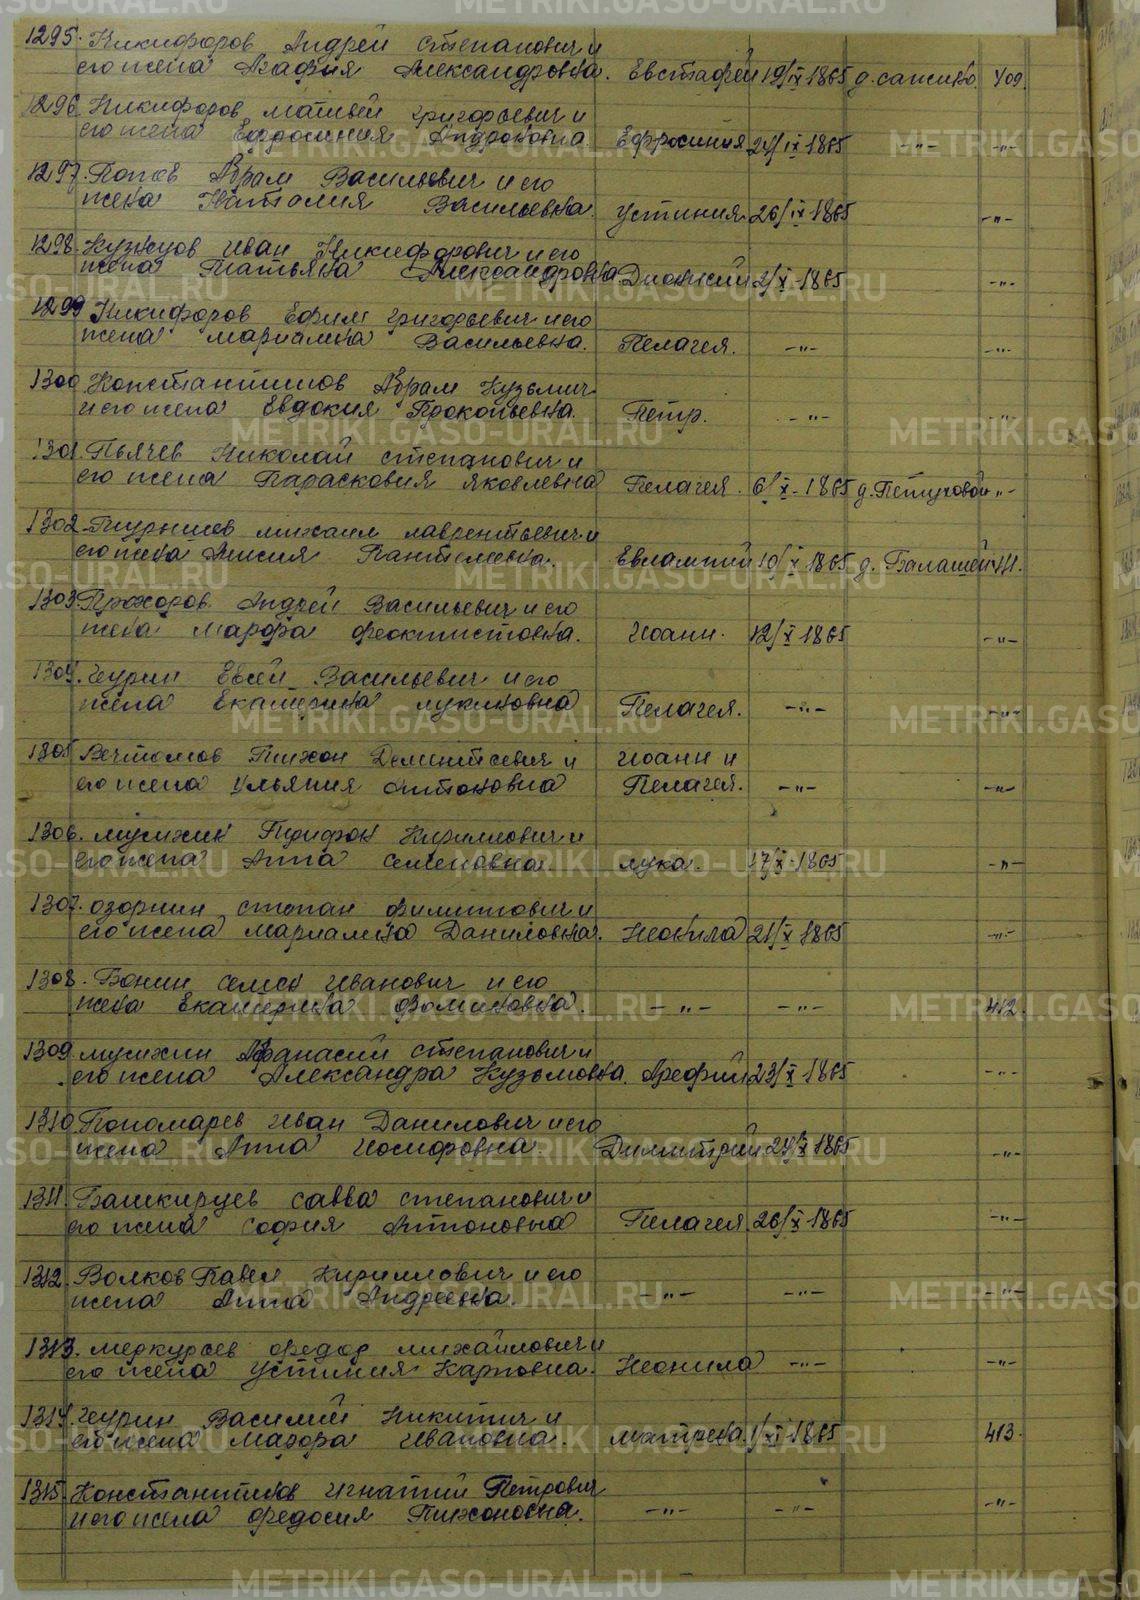 1295. Никифоров Андрей Степанович и
его жена Агафия Александровна. Евстафей 19/IX 1865 д. Сажино. 409.
1296. Никифоров Матвей Григорьевич и
его жена Ефросиния Андроновна Ефросиния 24/IX 1865 -"- -"-
1297. Попов Абрам Васильевич и его
жена Наталия Васильевна. Устиния. 26/IX 1865 -"-
1298. Кузнцов Иван Никифорович и его
жена Татьяна Александровна Дионисий 2/X-1865 -"-
1299 Никифоров Ефим Григорьевич и его
жена Мариамна Васильевна. Пелагея. -"- -"-
1300 Константинов Абрам Кузьмич
и его жена Евдокия Прокопьевна. Петр. -"- -"-
1301. Пьячев Николай Степанович и
его жена Парасковия Яковлевна Пелагея. 6/X-1865 д. Петуховой -"-
1302. Михаил Лаврентьевич и
его жена Анисия Пантелеевна. Евлампий 10/X 1865 д. Балашей 411.
1303 Прохоров Андрей Васильевич и его
жена Марфа Феоктистовна. Иоанн. 12/X 1865 -"-
1304. Чурин Евсей Васильевич и его
жена Екатерина Лукиновна Пелагея. -"- -"-
1305 Вечтомов Тихон Дементьевич и Иоанн и
его жена Ульяния Антоновна Пелагея. -"- -"-
1306. Мусихин Трифон Кириллович и
его жена Анна Семеновна. Лука. 17/X-1865 -"-
1307. Озорнин Степан Филиппович и
его жена Мариамна Даниловна. Неонила 21/X 1865 -"-
1308. Бонин Семен Иванович и его
жена Екатерина Фоминовна. -"- -"- 412.
1309. Мусихин Афанасий Степанович и
его жена Александра Кузьмовна. Арефий 23/X 1865 -"-
1310 Пономарев Иван Данилович и его
жена Анна Иосифовна. Димитрий 24/X 1865 -"-
1311. Башкирцев Савва Степанович и
его жена София Антоновна Пелагея 26/X-1865 -"-
1312. Волков Павел Кириллович и его
жена Анна Андреевна. -"- -"- -"-
1313. Меркурьев Федор Михайлович и
его жена Устиния Карповна. Неонила -"- -"-
1314. Чурин Василий Никитич и
его жена Ивановна. Матрена. 1/XI-1865 413.
1315. Константинов Игнатий Петрович
и его жена Федосия Тихоновна. -"- -"- -"-
METRIKI.GASO-URAL.RU